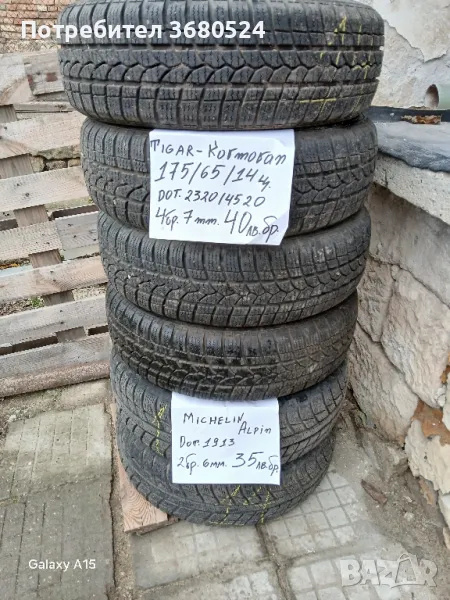 Потребител 3680524
TIGAR-Kormoran
175/65/14ц.
DOT.2320/4520
4бр. 7mm. 40лв.бр.
MICHELIN
Alpin
Dot.1913
2бр. 6mm. 35лв.бр.
Galaxy A15
BAZAR